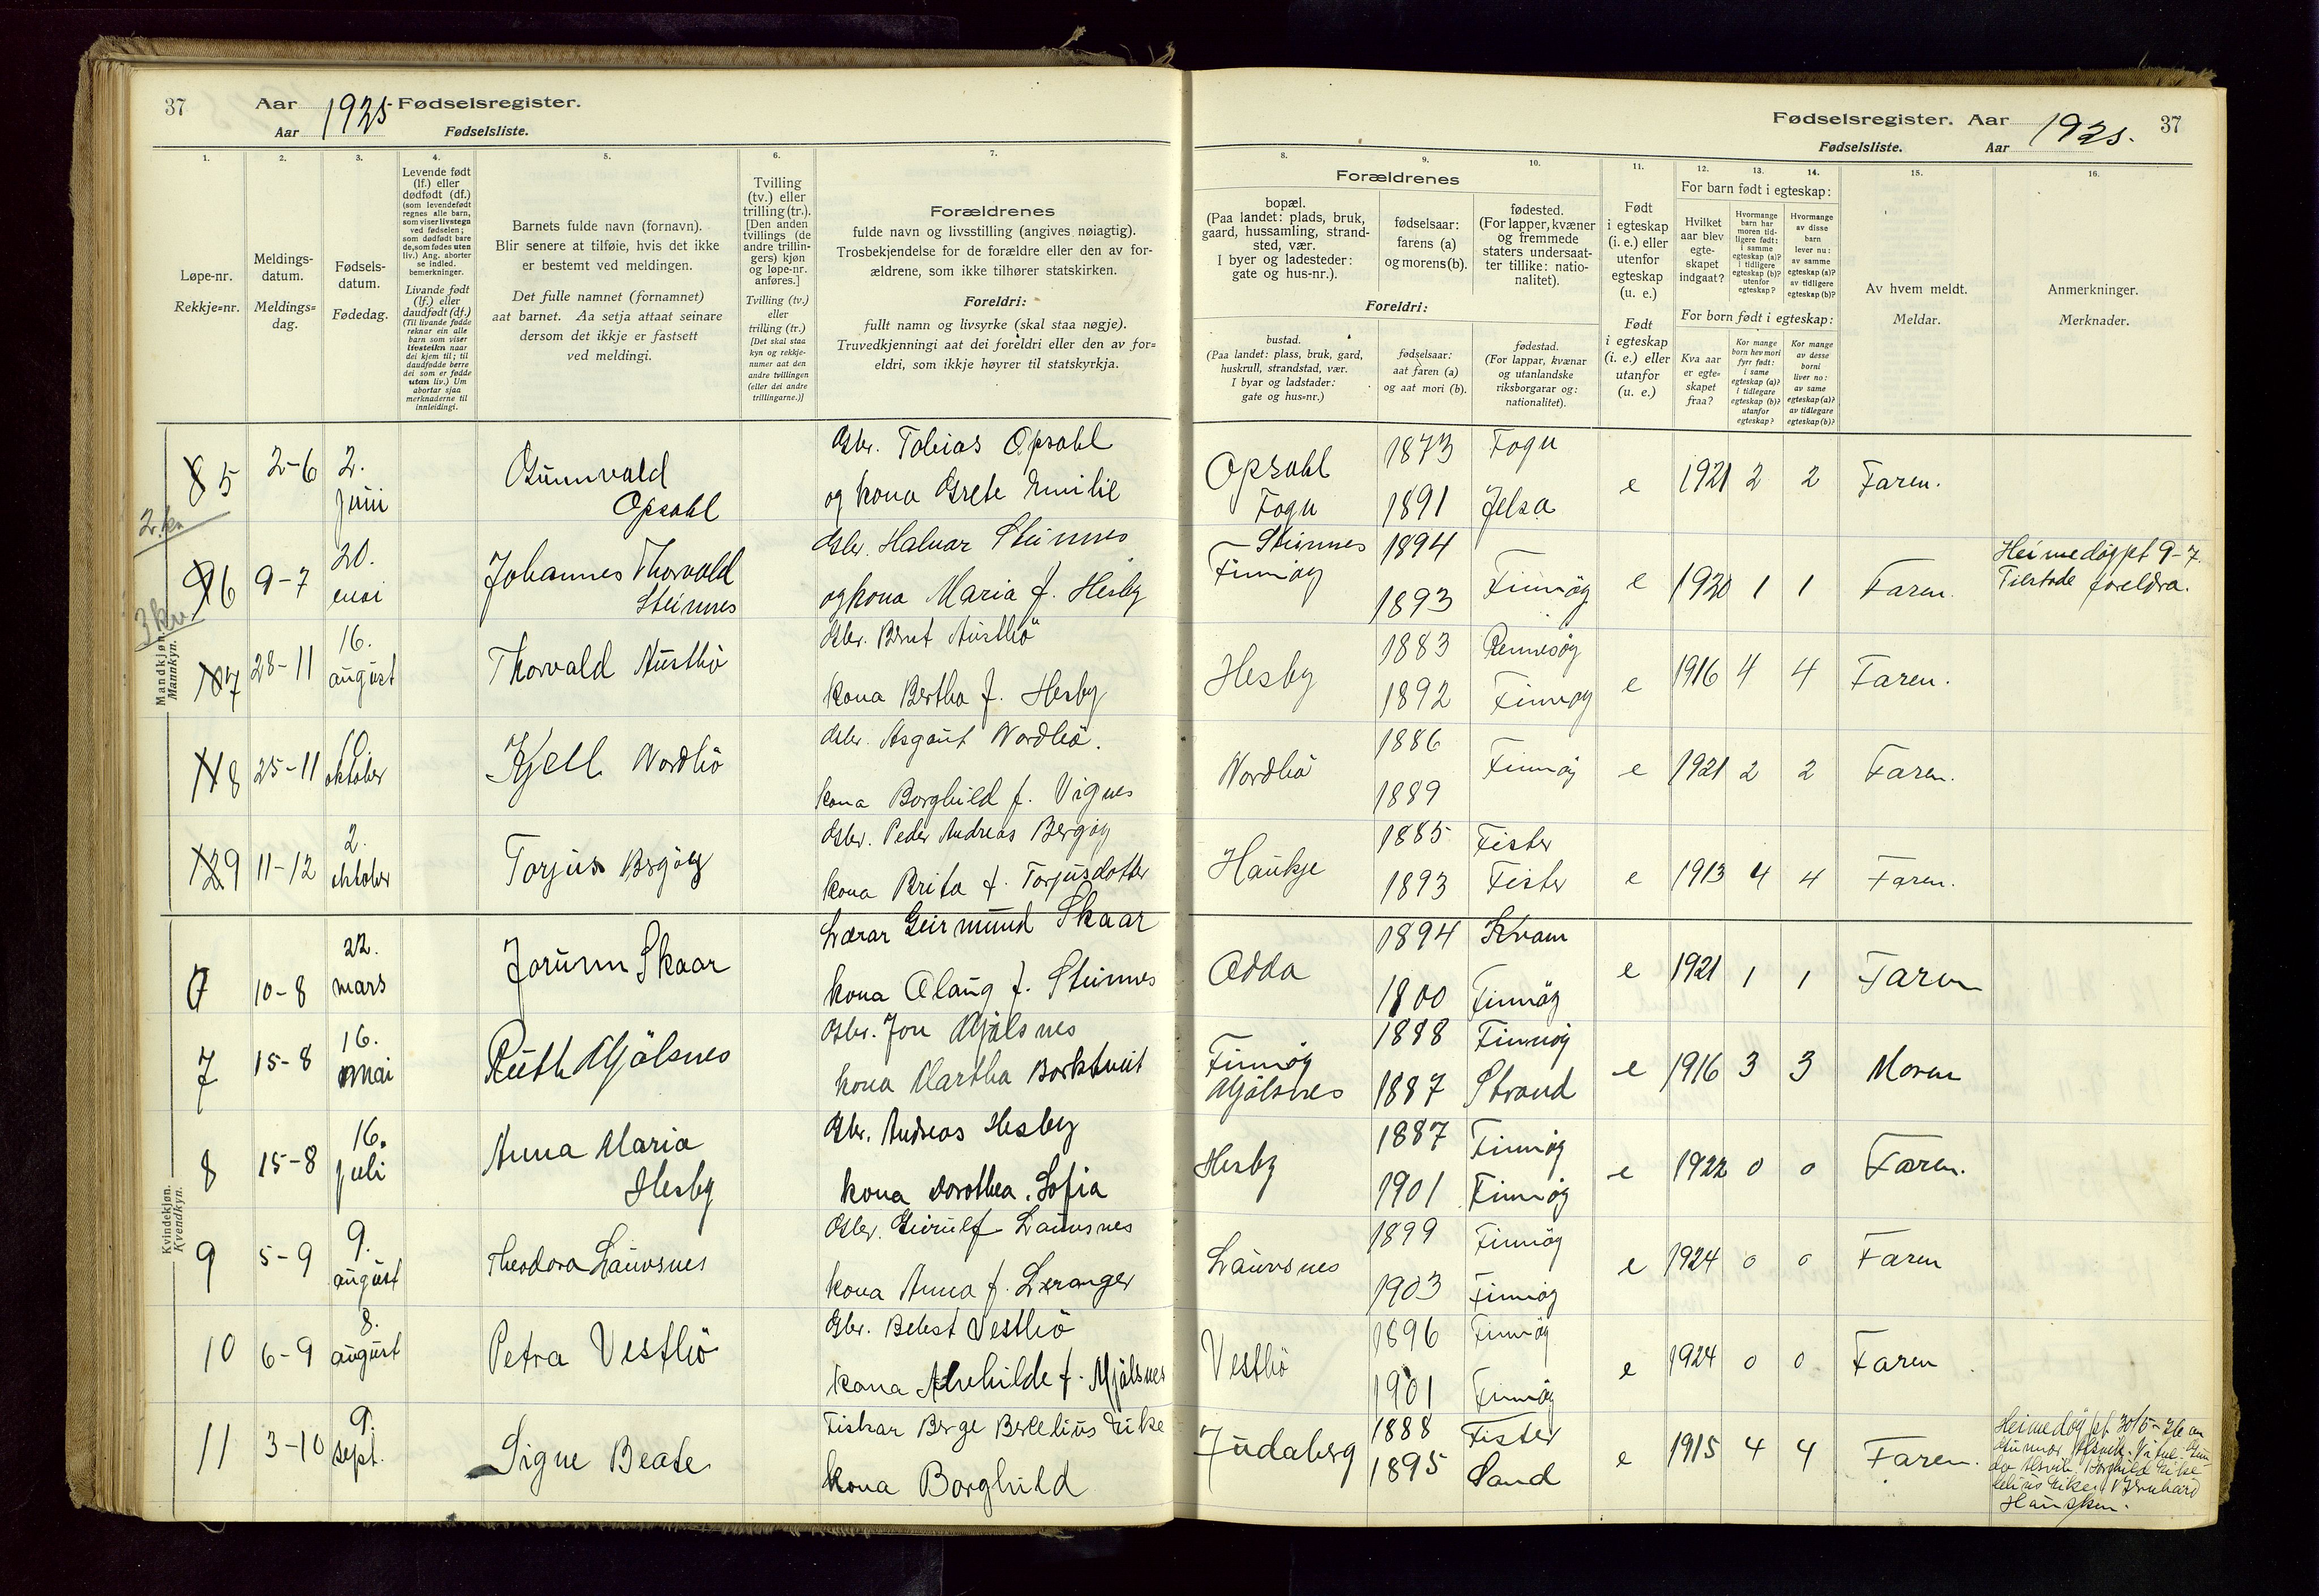 37
Aar 1925 Fødselsregister.
Aar Fødselsliste.
1.
2.
3.
4.
5.
6.
7.
Løpe-nr.
Rekkje=nr.
Meldings-
datum.
Meldings=
dag.
Fødsels-
datum.
Fødedag.
Levende født
(lf.) eller
dødfødt (df.)
(som levendefødt
regnes alle barn,
som viser livstegn
ved fødselen;
som dødfødt bare
de, som fødes uten
liv.) Ang. aborter
se indled.
bemerkninger.
Livande født
(lf.) eller
daudfødt (df.)
(Til livande fødde
reknar ein alle
barn som viser
livsteikn naar
dei kjem til; til
daudfødde berre
dei som er fødde
utan liv.) Um
abortar sjaa
merknaderne til
innleidingi.
Barnets fulde navn (fornavn).
Blir senere at tilføie, hvis det ikke
er bestemt ved meldingen.
Det fulle namnet (fornamnet)
aat barnet. Aa setja attaat seinare
dersom det ikkje er fastsett
ved meldingi.
Tvilling
(tv.) eller
trilling (tr.).
[Den anden
tvillings (de
andre trillin-
gers) kjøn
og løpe-nr.
anføres.]
Tvilling (tv.)
eller
trilling (tr.)
[Det skal staa
kyn og rekkje-
numer aat den
andre tvillingen
(eller dei andre
trillingarne.)]
Forældrenes
fulde navn og livsstilling (angives nøiagtig).
Trosbekjendelse for de forældre eller den av for-
ældrene, som ikke tilhører statskirken.
Foreldri:
fullt namn og livsyrke (skal staa nøgje).
Truvedkjenningi aat dei foreldri eller den av for=
eldri, som ikkje høyrer til statskyrkja.
Fødselsregister. Aar 1925. 37
Fødselsliste. Aar
8.
9.
10.
11.
12.
13.
14.
15.
16.
Forældrenes
bopæl.
(Paa landet: plads, bruk,
gaard, hussamling, strand-
sted, vær.
I byer og ladesteder:
gate og hus-nr.).
fødselsaar:
farens (a)
og morens (b).
fødested.
(For lapper, kvæner
og fremmede
staters undersaat-
ter tillike: natio-
nalitet).
Foreldri:
bustad.
(Paa landet: plass, bruk, gard,
huskrull, strandstad, vær.
I byar og ladstader:
gate og hus=nr.)
fødselsaar:
aat faren (a)
og aat mori (b).
fødestad.
(For lappar, kvænar
og utanlandske
riksborgarar og:
nationalitet).
Født
i egteskap
(i. e.) eller
utenfor
egteskap
(u. e.)
Født
i egteskap
(i. e.) eller
utanfor
(u. e.)
For barn født i egteskap:
Hvilket
aar blev
egte-
skapet
indgaat?
Hvormange
barn har
moren tid-
ligere født:
i samme
egteskap (a)?
i tidligere
egteskap (b)?
utenfor
egteskap?
Hvormange
av disse
barn
lever nu:
av samme
egteskap (a)?
av tidligere
egteskap (b)?
For born født i egteskap:
Kva aar
er egte=
skapet
fraa?
Kor mange
born hev mori
fyrr født:
i same
egteskap (a)?
i tidlegare
egteskap (b)?
utanfor
egteskap?
Kor mange
av desse
borni
liver no:
av same
egteskap (a)?
av tidlegare
egteskap (b)?
Av hvem meldt.
Meldar.
Anmerkninger.
Merknader.
Mandkjøn.
Mannkyn.
2 kv.
3 kv.
8 5 2-6 2. juni Gunnvald Opsahl Gbr. Tobias Opsahl
og kona Grete Emilie
Opsahl Fogn 1873 1891 Fogn Jelsa e 1921 2 2 Faren.
9 6 9-7 20. mai Johannes Thorvald Steinnes Gbr. Halvar Steinnes
og kona Maria f. Hesby
Steinnes Finnöy 1894 1893 Finnöy e 1920 1 1 Faren. Heimedöypt 9-7.
Tilstode foreldra.
10 7 28-11 16. august Thorvald Austbö Gbr. Bernt Austbö
kona Bertha f. Hesby
Hesby 1883 1892 Rennesöy Finnöy e 1916 4 4 Faren.
11 8 25-11 10 oktober Kjell Nordbö Gbr. Asgaut Nordbö.
kona Borghild f. Vignes
Nordbö 1886 1889 Finnöy e 1921 2 2 Faren.
12 9 11-12 2. oktober Torjus Bergöy Gbr. Peder Andreas Bergöy
kona Brita f. Torjusdotter
Haukje 1885 1893 Fister Fister e 1913 4 4 Faren.
Kvindekjøn.
Kvendkyn.
10-8 22. mars Jorunn Skaar Lærar Geirmund Skaar
kona Olaug f. Steinnes
Odda 1894 1900 Kvam Finnöy e 1921 1 1 Faren
7 15-8 16. mai Ruth Mjölsnes Gbr. Jon Mjölsnes
kona Martha Borktveit
Finnöy Mjölsnes 1888 1887 Finnöy Strand e 1916 3 3 Moren
8 15-8 16. juli Anna Maria Hesby Gbr. Andreas Hesby
kona Dorothea Sofia
Hesby 1887 1901 Finnöy Finnöy e 1922 0 0 Faren.
9 5-9 9. august Theodora Lauvsnes Gbr. Geirulf Lauvsnes
kona Anna f. Leranger
Lauvsnes 1899 1903 Finnöy Finnöy e 1924 0 0 Faren
10 6-9 8. august Petra Vestbö Gbr. Beest Vestbö
kona f. Mjölsnes
Vestbö 1896 1901 Finnöy Finnöy e 1924 0 0 Faren
11 3-10 9. sept. Signe Beate Fiskar Berge Berelius Eike
kona Borghild
Judaberg 1888 1895 Fister Sand e 1915 4 4 Faren. Heimedöypt 30/5
Gunnar Borghild Eike
Eike
Haugken.